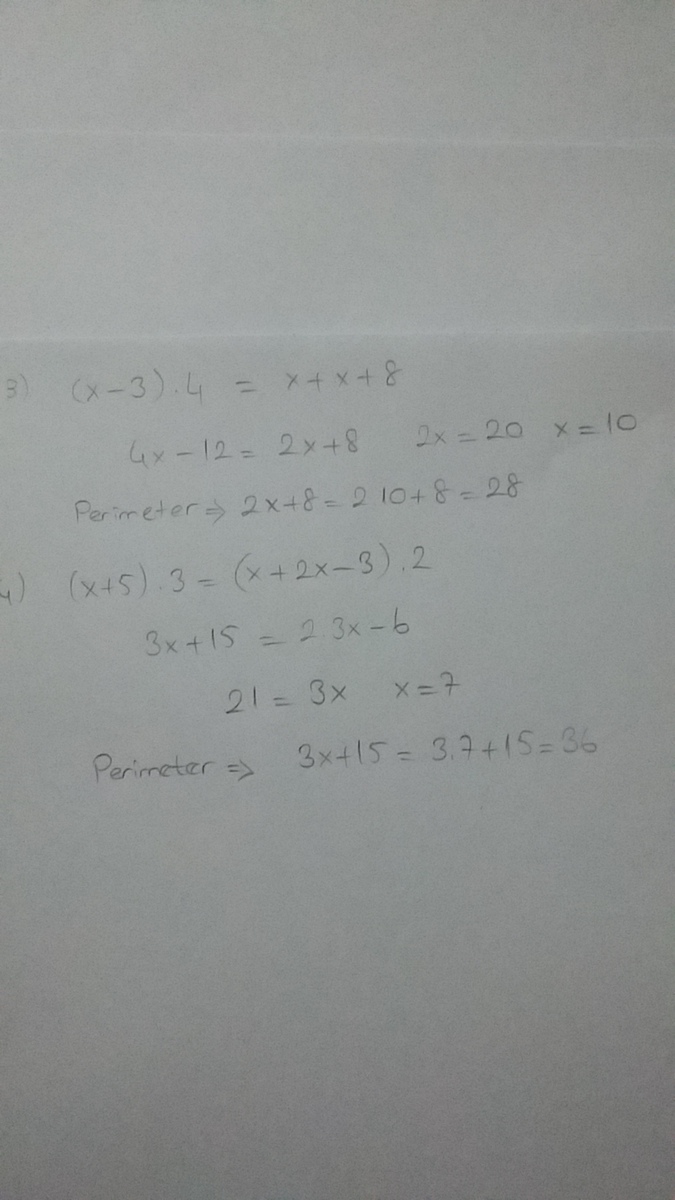 3) (x-3).4 = x+x+8
4x-12= 2x+8 2x=20 x=10
Perimeter ⇒ 2x+8= 2 10+8=28
4) (x+5).3=(x+2x-3).2
3x+15 = 2.3x-6
21= 3x x=7
Perimeter ⇒ 3x+15= 3.7+15=36